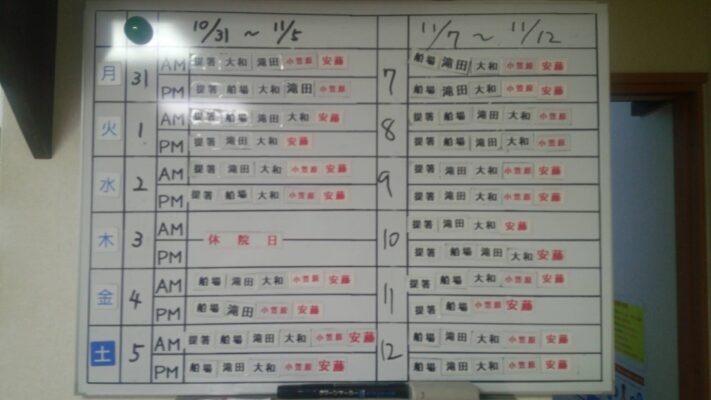 10/31 ~ 11/5 11/7 ~ 11/12
月 31 AM 提箸 大和 滝田 小笠原 安藤 7 船場 滝田 大和 小笠原 安藤
PM 提箸 船場 大和 滝田 小笠原 船場 滝田 大和 小笠原 安藤
火 1 AM 提箸 船場 滝田 大和 安藤 8 提箸 船場 滝田 大和 小笠原
PM 提箸 滝田 大和 安藤 提箸 船場 滝田 大和 小笠原
水 2 AM 提箸 滝田 大和 小笠原 安藤 9 提箸 滝田 大和 小笠原 安藤
PM 提箸 船場 大和 小笠原 安藤 提箸 滝田 大和 小笠原 安藤
木 3 AM 休院日 10 提箸 滝田 大和 安藤
PM 提箸 船場 滝田 大和 安藤
金 4 AM 船場 滝田 大和 小笠原 安藤 11 提箸 船場 大和 小笠原 安藤
PM 船場 滝田 小笠原 安藤 提箸 船場 小笠原 安藤
土 5 AM 提箸 船場 滝田 大和 小笠原 安藤 12 船場 滝田 大和 小笠原 安藤
PM 船場 滝田 大和 小笠原 安藤 船場 滝田 大和 小笠原 安藤